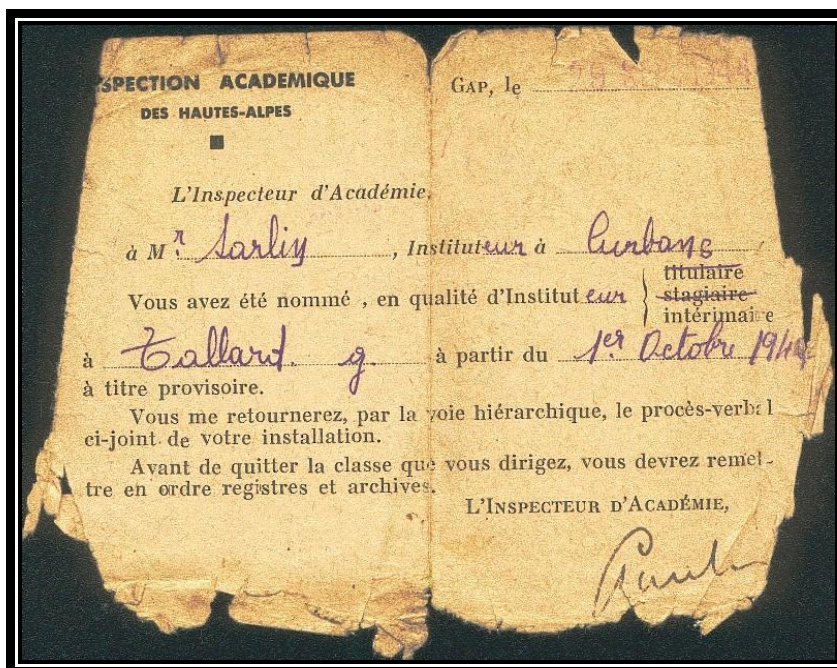 SPECTION ACADEMIQUE
DES HAUTES-ALPES
GAP, le
L'Inspecteur d'Académie,
à Mr. Sarlin, Instituteur à Curbans
Vous avez été nommé , en qualité d'Instituteur } titulaire
stagiaire
intérimaire
à Tallard. g. à partir du 1er Octobre 1944
à titre provisoire.
Vous me retournerez, par la voie hiérarchique, le procès-verbal
ci-joint de votre installation.
Avant de quitter la classe que vous dirigez, vous devrez remet-
tre en ordre registres et archives.
L'INSPECTEUR D'ACADÉMIE,